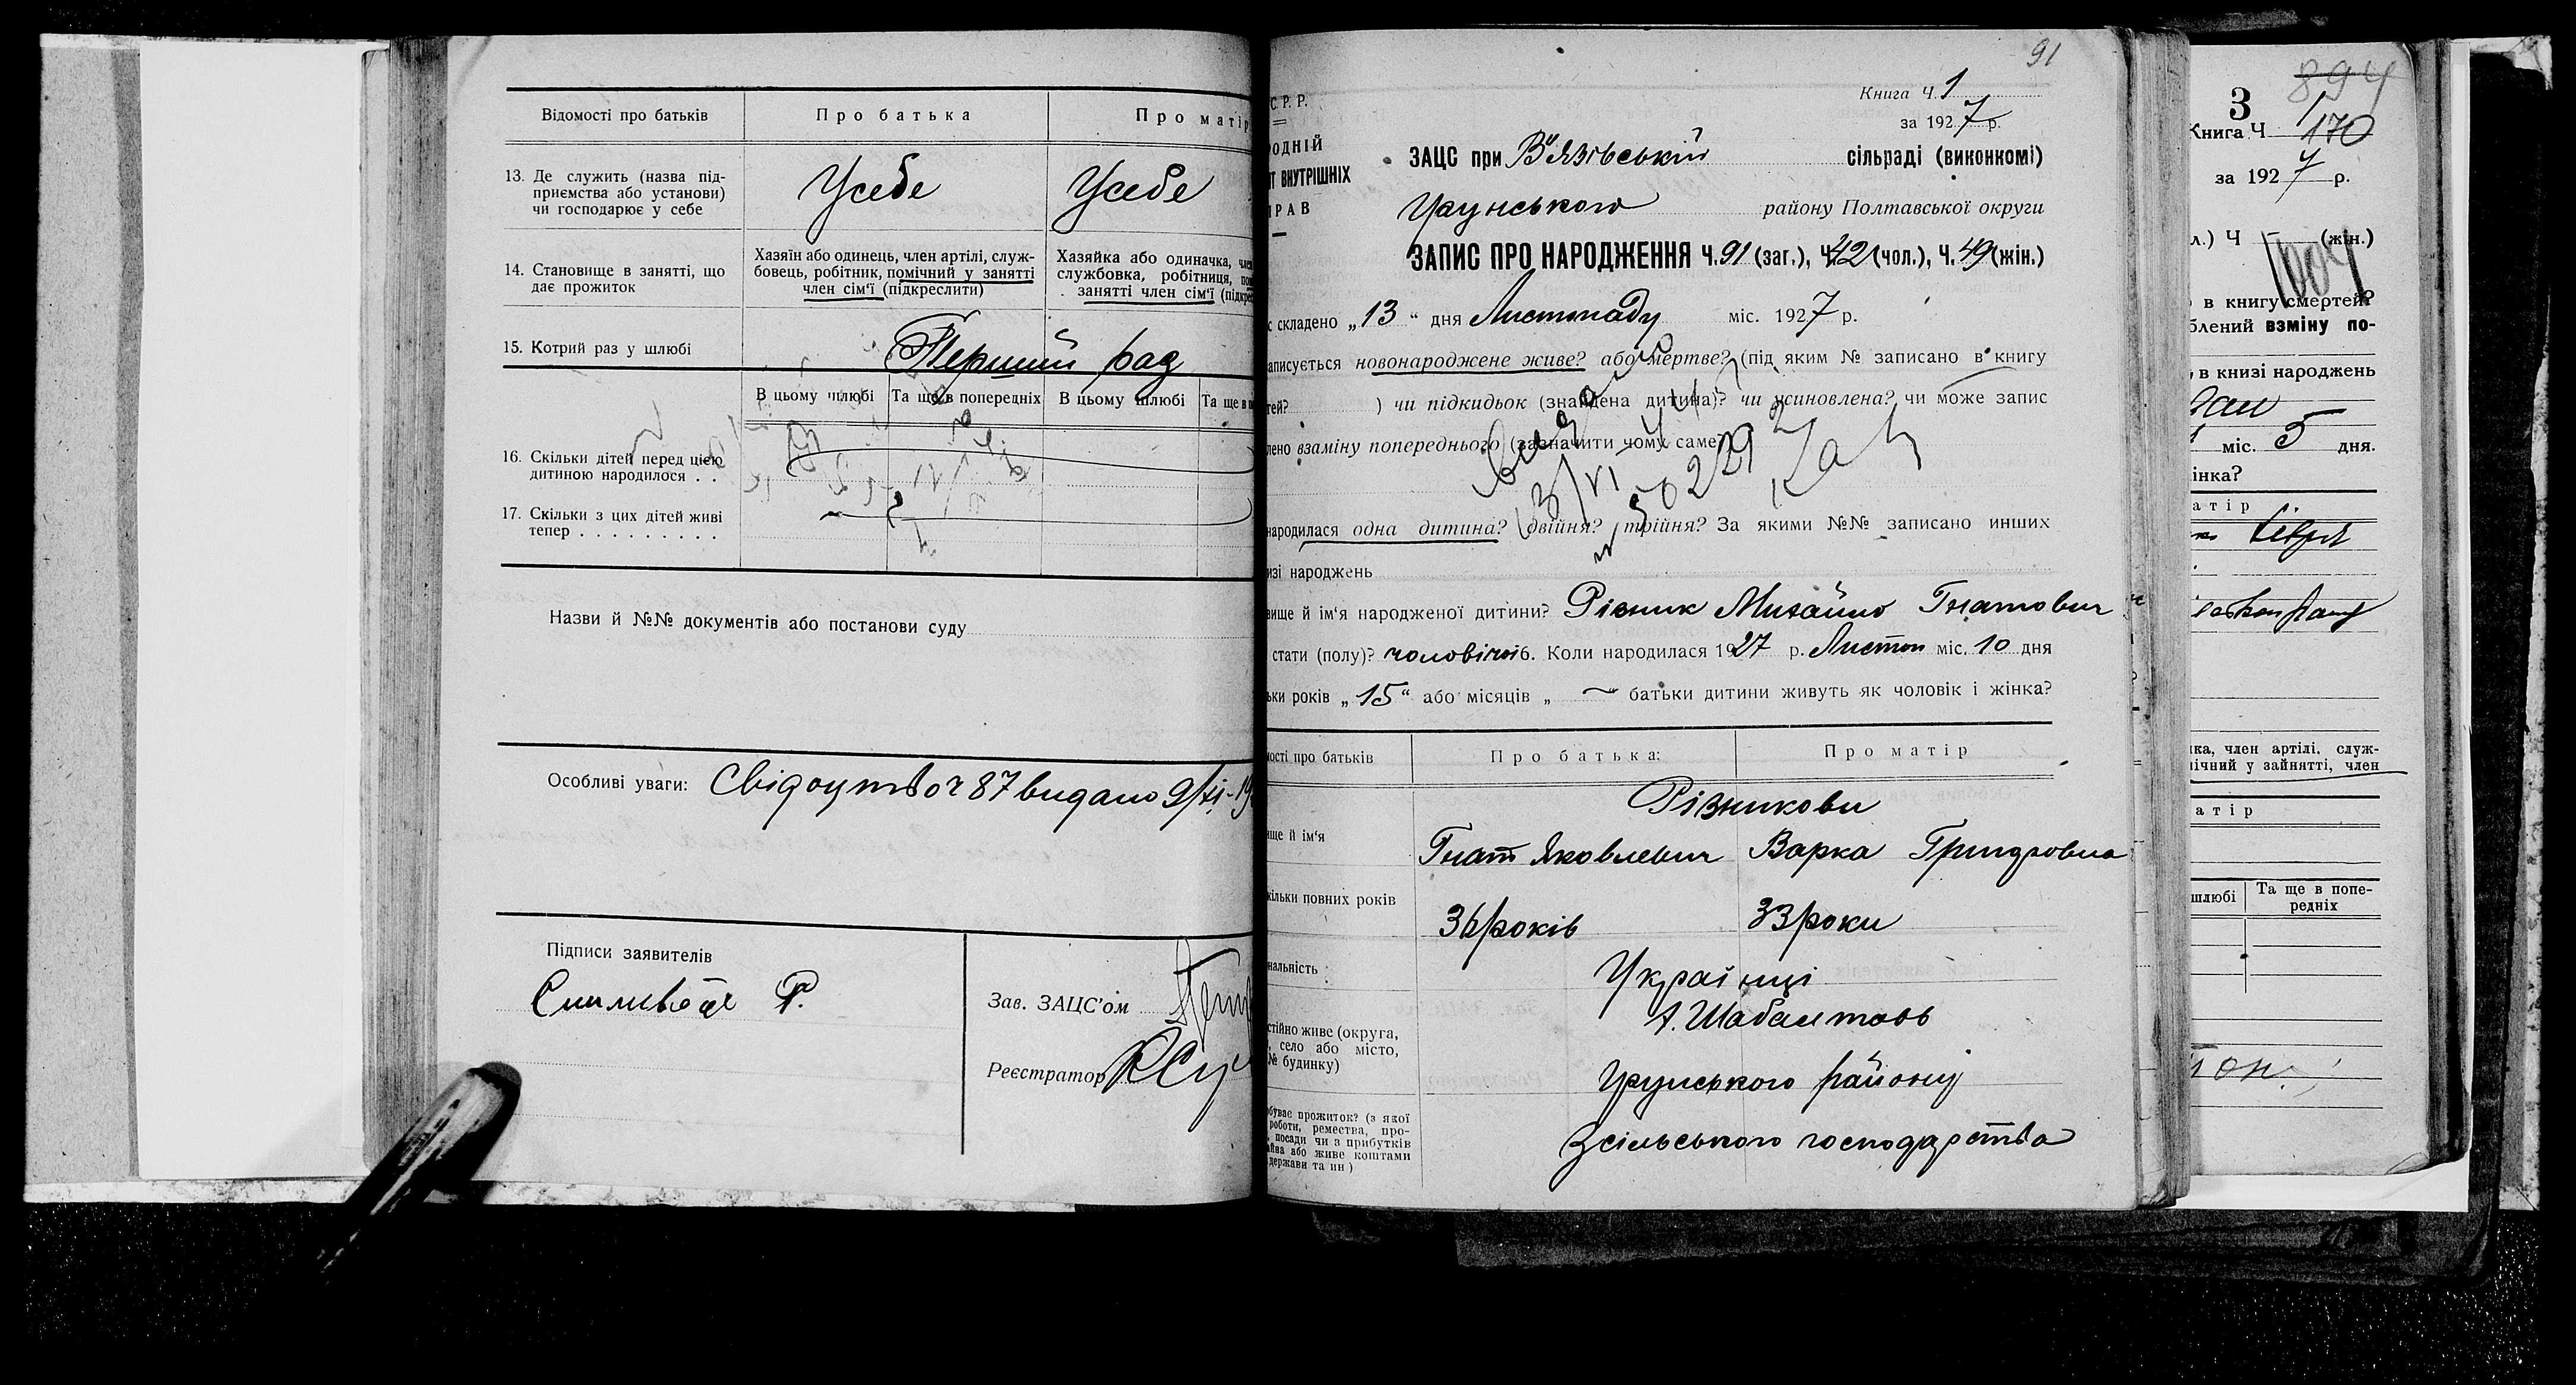 Відомості про батьків
Про батька
Про матір
13. Де служить (назва під-
приємства або установи)
чи господарює у себе
Усебе
Усебе
14. Становище в занятті, що
дає прожиток
Хазяїн або одинець, член артілі, служ-
бовець, робітник, помічний у занятті
член сім'ї (підкреслити)
Хазяйка або одиначка, член
службовка, робітниця, по
занятті член сім'ї (підкре
15. Котрий раз у шлюбі
Перший раз
В цьому шлюбі
Та ще в попередніх
В цьому шлюбі
Та ще в по
16. Скільки дітей перед цією
дитиною народилося . .
17. Скільки з цих дітей живі
тепер . . . . . . . . .
Назви й №№ документів або постанови суду
Особливі уваги:
видано
Підписи заявителів
Зав. ЗАЦС'ом
Реєстратор
91
С. Р. Р.
РОДНІЙ
Т ВНУТРІШНІХ
РАВ
Книга Ч. 1
за 1927 р.
ЗАЦС при В'язівській сільраді (виконкомі)
району Полтавської округи
ЗАПИС ПРО НАРОДЖЕННЯ Ч. 91 (заг.), Ч. 42 (чол.), Ч. 49 (жін.)
с складено „13“ дня Листопаду міс. 1927 р.
аписується новонароджене живе? або мертве? (під яким № записано в книгу
тей? ) чи підкидьок (знайдена дитина)? чи усиновлена? чи може запис
лено взаміну попереднього (зазначити чому саме)
народилася одна дитина? двійня? трійня? За якими №№ записано инших
изі народжень
вище й ім'я народженої дитини? Різник Михайло Гнатович
стати (полу)? чоловічої 6. Коли народилася 1927 р. Листоп міс. 10 дня
ьки років „15“ або місяців „ — батьки дитини живуть як чоловік і жінка?
мості про батьків
Про батька:
Про матір
Різникови
ище й ім'я
Гнат Яковлевич
Варка
кільки повних років
36 років
33 роки
нальність
Українці
стійно живе (округа,
, село або місто,
№ будинку)
району
обуває прожиток? (з якої
роботи, ремества, про-
, посади чи з прибутків
айна або живе коштами
держави та ин)
Зсільського господарства
3
894
Книга Ч 1
170
за 1927 р.
л.) Ч (жін.)
1004
в книгу смертей?
блений взміну по-
, в книзі народжень
1 міс. 5 дня.
інка?
атір
ка, член артілі, служ-
мічний у зайнятті, член
атір
шлюбі
Та ще в попе-
редніх